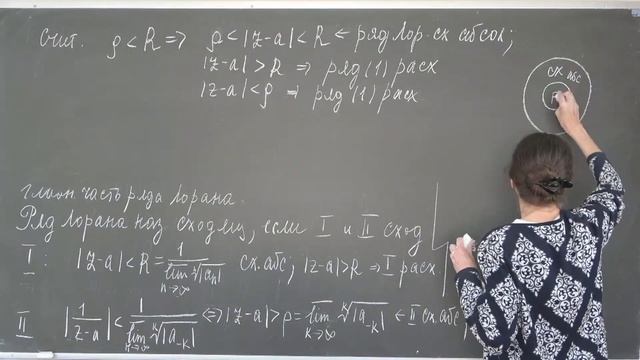 Счит. ρ < R => ρ < |z-a| < R ← ряд Лор. сх абсол;
|z-a| > R => ряд (1) расх
|z-a| < ρ => ряд (1) расх
сх абс
главн. часть ряда Лорана.
Ряд Лорана наз. сходящ, если I и II сход
I: |z-a| < R = 1/(lim n→∞ ⁿ√|aₙ|) сх. абс; |z-a| > R => I расх
II |1/(z-a)| < 1/(lim k→∞ ᵏ√|a₋ₖ|) <=> |z-a| > ρ = lim k→∞ ᵏ√|a₋ₖ| ← II сх. абс